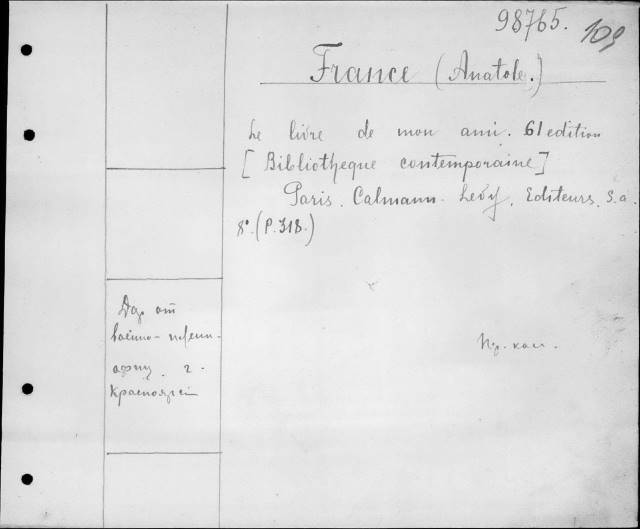 98765. 109
France (Anatole.)
Le livre de mon ami. 61 edition
[Bibliotheque contemporaine]
Paris. Calmann-Levy, Editeurs. S.a.
8°. (P. 318.)
Др. от
военно-плен-
г.
Красноярск